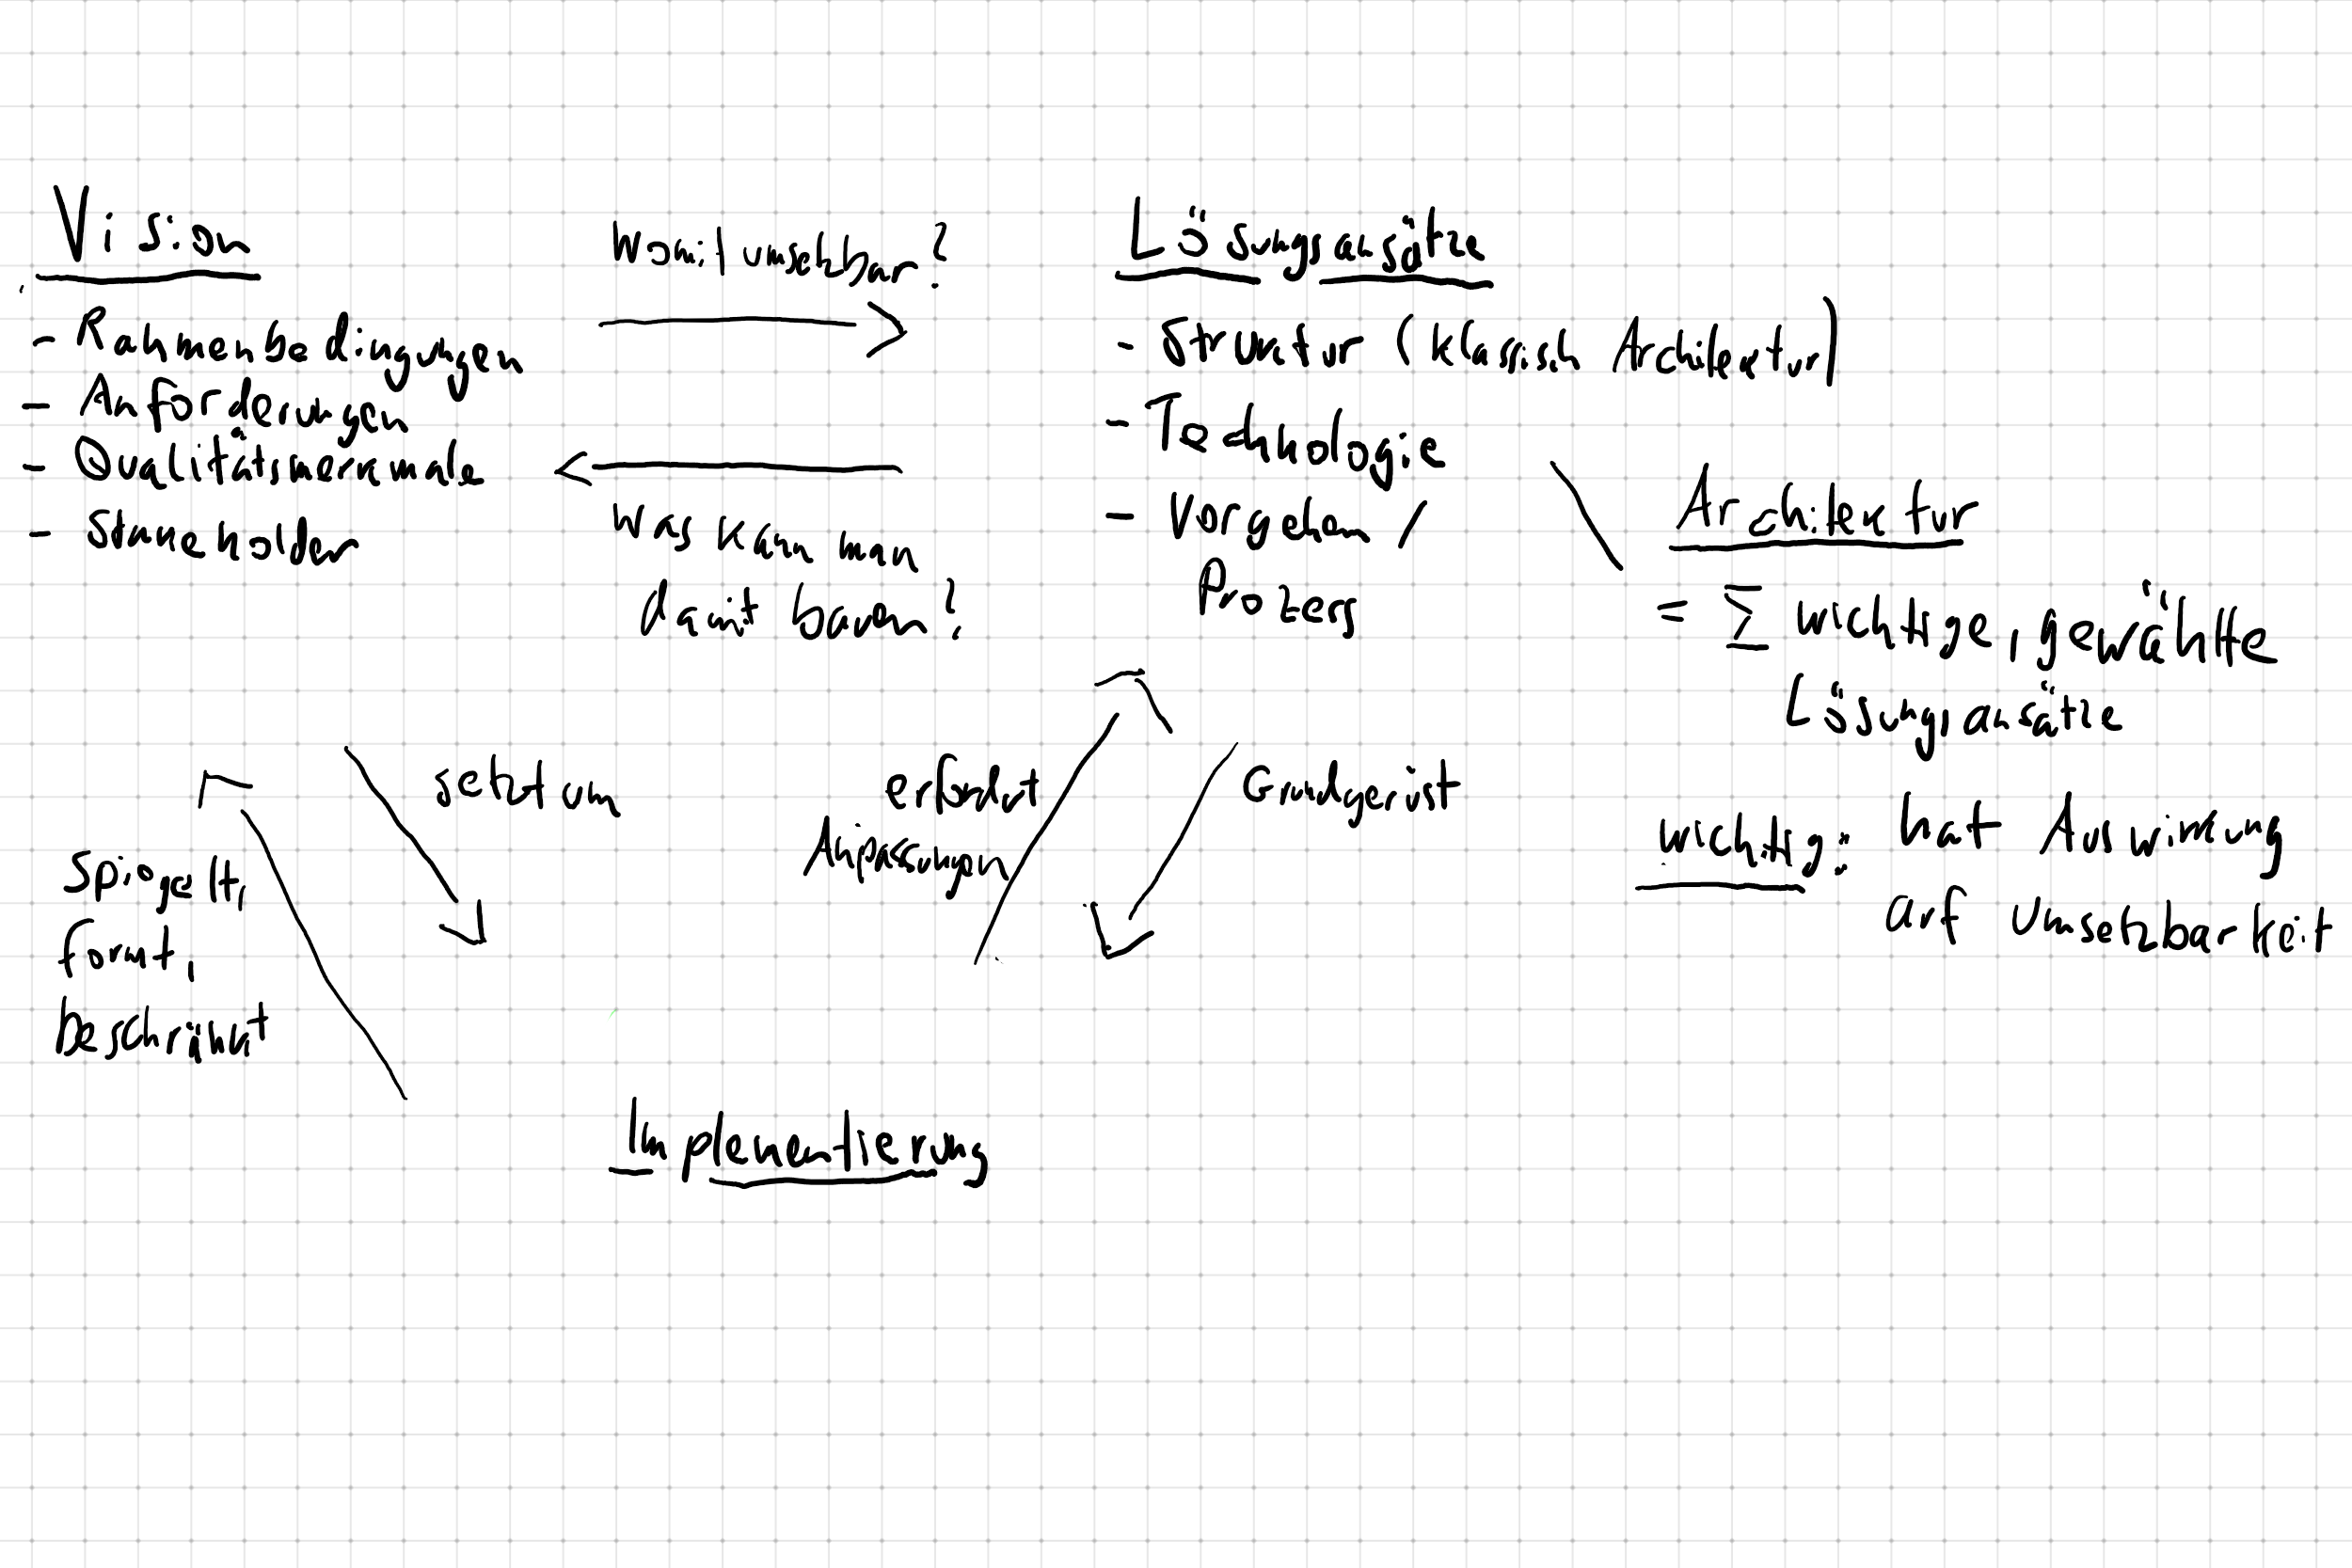 Vision
- Rahmenbedingungen
- Anforderungen
- Qualitätsmerkmale
- Stakeholder
Womit umsetzbar?
Was kann man
damit bauen?
Lösungsansätze
- Struktur (klassisch Architektur)
- Technologie
- Vorgehen /
Prozess
Architektur
= Σ wichtige, gewählte
Lösungsansätze
wichtig: hat Auswirkung
auf Umsetzbarkeit
setzt um
spiegelt,
formt,
beschränkt
erfordert
Anpassungen
Grundgerüst
Implementierung